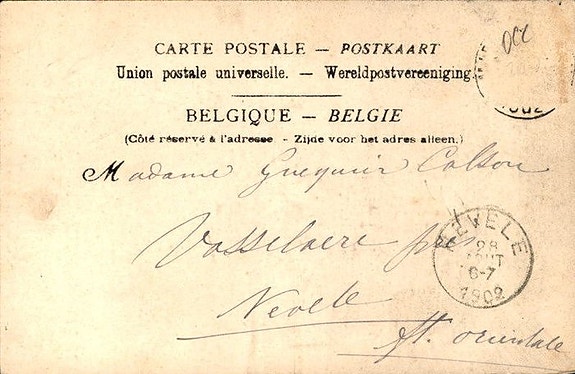 CARTE POSTALE — POSTKAART
Union postale universelle. — Wereldpostvereeniging.
BELGIQUE — BELGIE
(Côté réservé à l'adresse. - Zijde voor het adres alleen.)
Madame Colson
Vosselaere près
Nevele
fl. orientale
NEVELE
28
AOUT
6-7
1902
1902